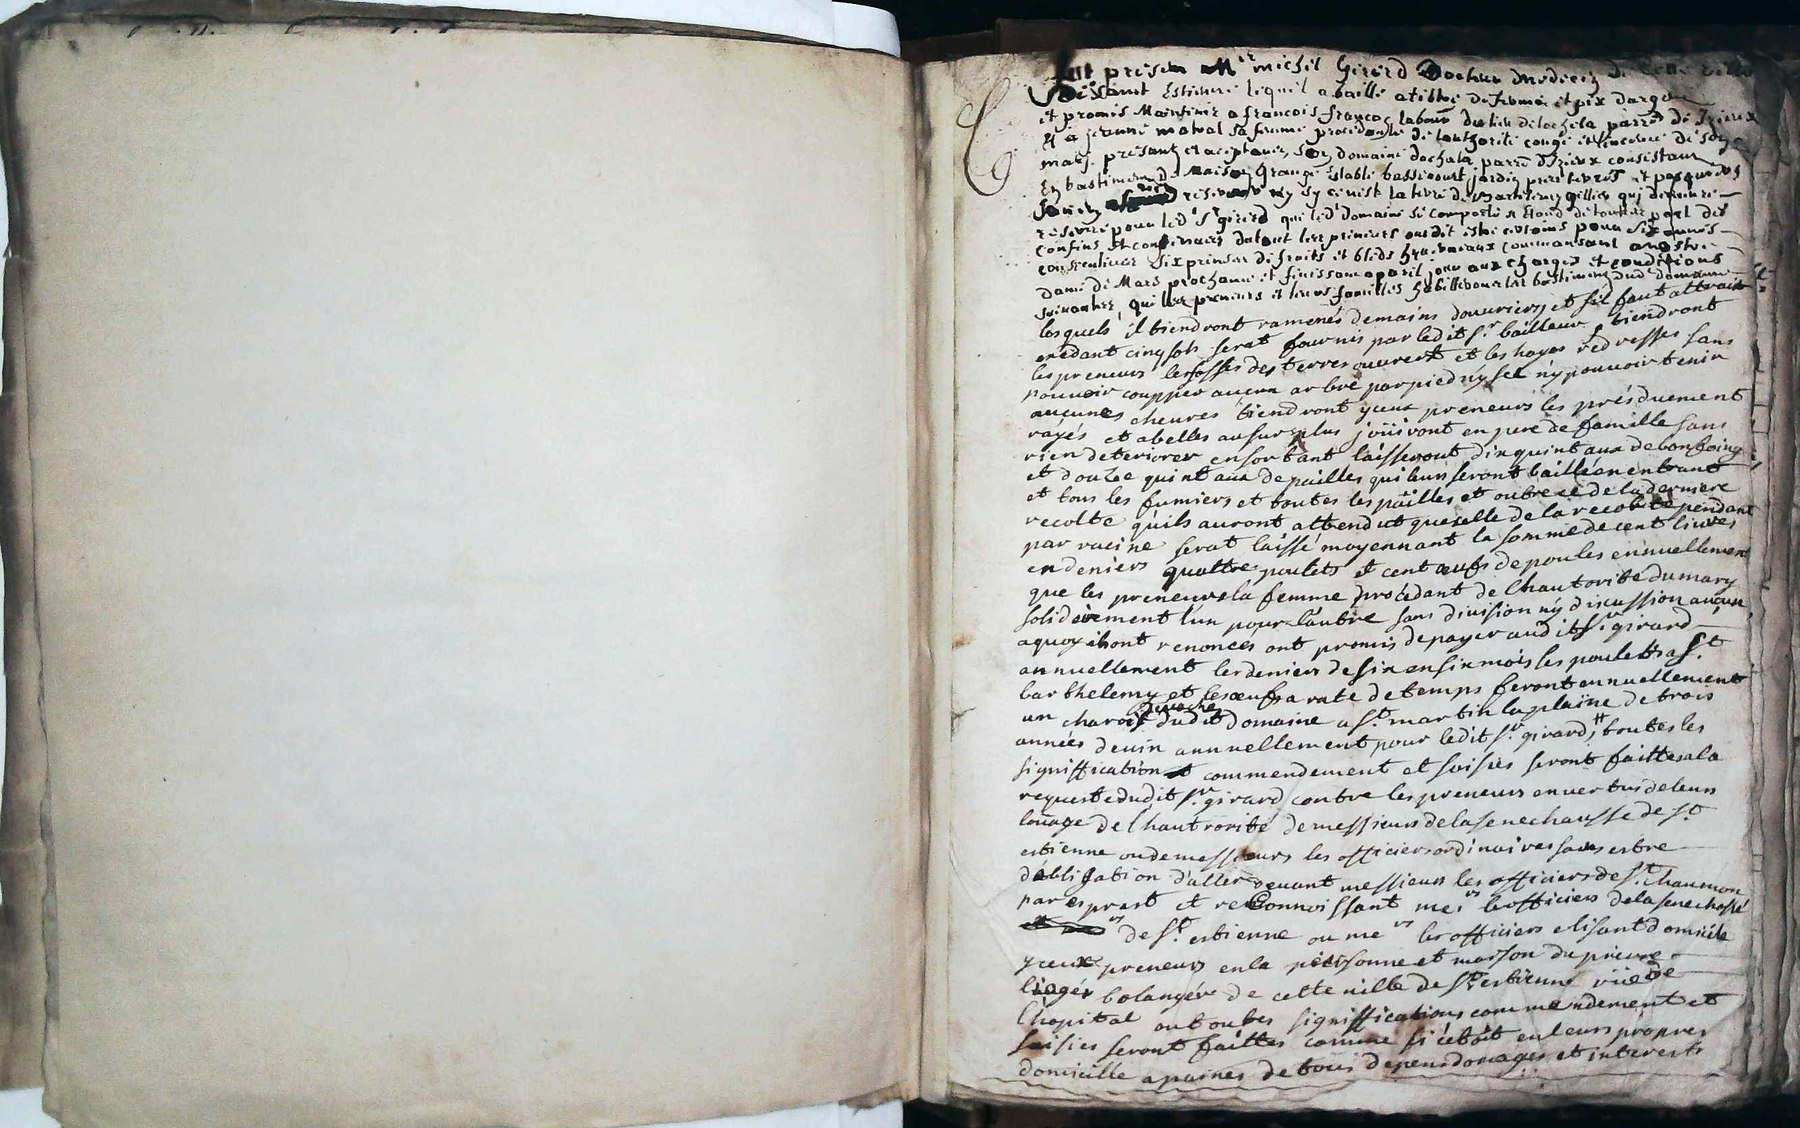 fut presen Mr michel Girerd docteur medecin de cette ville
St estienne lequel a baillé a tiltre de ferme et pix dargen
et promis Maintenir a francois francoc labour du lieu de lochela parre d'Irieux
Et a jeanne matval sa femme procedante de lauthorité congé et licence de son
mary presant et acceptans, son domaine dochala parre d'Irieux consistant
En bastiments de Maison Grange establé basse court jardin prez terres et pasquiers
reserver ny sy ce nist la terre de Barthlemy gillier qui demeure
reservé pour led' Sr girerd que led' domaine se comporte et etand de toutes part des
confins et
consecutives six prinses de fruits et bleds commansant a nostre
dame de Mars prochaine et finissant a pareil jour aux charges et conditions
suivantes que les preneurs et leurs familles habitteront les bastiments dud domaine
lesquels il tiendront ramenés demains douvriers et sil faut attrait
exedant cinq sols serat fournis par ledit Sr bailleur, tiendront
les preneurs les fosses des terres ouvertes et les hayes redresses sans
pouvoir coupper aucun arbre par pied ny sec ny pouvoir tenir
aucunes cheures tiendront yceux preneurs les prés duement
rayés et abelles au surplus joüiront en pere de famille sans
rien deteriorer en sortant laisseront dix quintaux de bon foing
et douze quintaux de pailles qui leurs seront baillé en entrant
et tous les fumiers et toutes les pailles et outre ce de la derniere
recolte quils auront attendut que celle de la recolte pendant
par racine serat laissé moyennant la somme de cent livres
en deniers quattre poulets et cent œufs de poules ennuellement
que les preneurs la femme procédant de lhautorité du mary
solidèrement lun pour lautre sans division ny discussion aucun
a quoy ils ont renonces ont promis de payer audit Sr girard
annuellement les deniers de six en six mois les poulets a St
barthelemy et les œufs a rate de temps feront annuellement
un charois dudit domaine a St martin la plaine de trois
années de vin annuellement pour ledit Sr girard, toutes les
signiffication commendement et saisies seront faittes a la
requeste dudit Sr girard contre les preneurs en vertus de leur
loüage de lhautrorité de messieurs de la senechausse de St
estienne ou de messieurs les officiers ordinaires sans estre
dobligation d'aller devant messieurs les officiers de St Chaumon
par esprest et reconnoissant mesrs les officiers de la senechossé
de St estienne ou mesrs les officiers elisant domicile
yceux preneurs en la personne et maison du
boulanger de cette ville de St estienne rüe de
lhopital ou toutes signiffications commendement et
saisies seront faittes comme si cétoit en leurs propres
domicille a paines de tous depens domages et interests